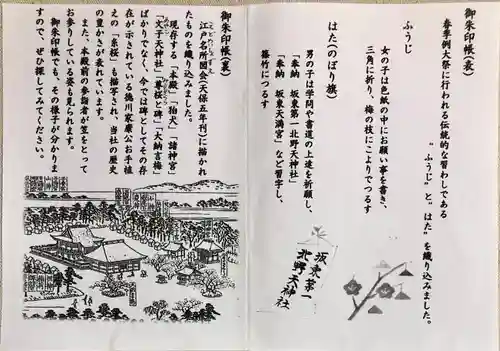 御朱印帳(表)
春季例大祭に行われる伝統的な習わしである
"ふうじ"と"はた"を織り込みました。
ふうじ
女の子は色紙の中にお願い事を書き、
三角に折り、梅の枝にこよりでつるす
はた(のぼり旗)
男の子は学問や書道の上達を祈願し、
「奉納 坂東第一北野天神社」
「奉納 坂東天満宮」など習字し、
篠竹につるす
坂東第一
北野天神社
御朱印帳(裏)
江戸名所図会(天保五年刊)に描かれ
たものを織り込みました。
現存する「本殿」「狛犬」「諸神宮」
「文子天神社」「尊桜と碑」「大納言梅」
ばかりでなく、今では碑としてその存
在が示されている徳川家康公お手植
えの「糸桜」も描写され、当社の歴史
の豊かさが表れています。
また、本殿前の参詣者が笠をとって
お参りしている姿も見られます。
御朱印帳でも、その様子が分かりま
すので、ぜひ探してみてください。